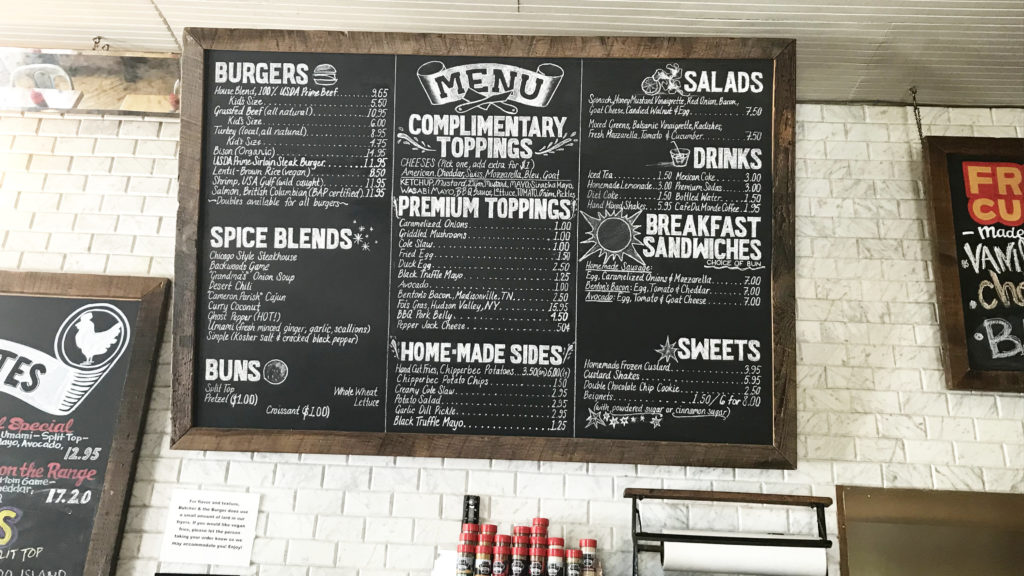 BURGERS
House Blend, 100% USDA Prime Beef 9.65
Kid's Size 5.50
Grassfed Beef (all natural)
Kid's Size 6.00
Turkey (local, all natural) 8.95
Kid's Size 4.75
Bison (Organic) 14.95
USDA Prime Sirloin Steak Burger 11.95
Lentil-Brown Rice (vegan) 8.50
Shrimp, USA Gulf (wild caught) 11.95
Salmon, British Colombian (BAP certified) 11.95
~Doubles available for all burgers~
SPICE BLENDS
Chicago Style Steakhouse
Backwoods Game
Grandma's Onion Soup
Desert Chili
"Cameron Parish" Cajun
Curry Coconut
Ghost Pepper (HOT!)
Umami (fresh minced ginger, garlic, scallions)
Simple (Kosher salt & cracked black pepper)
BUNS
Split Top
Whole Wheat
Pretzel ($1.00)
Lettuce
Croissant ($1.00)
MENU
COMPLIMENTARY
TOPPINGS
CHEESES (Pick one, add extra for $1)
American, Cheddar, Swiss, Mozzarella, Bleu, Goat
KETCHUP, Mustard, Dijon Mustard, MAYO, Sriracha Mayo,
WASABI MAYO, BBQ Sauce, Lettuce, TOMATO, Onion, Pickles
PREMIUM TOPPINGS
Caramelized Onions 1.00
Griddled Mushrooms 1.00
Cole Slaw 1.00
Fried Egg 1.50
Duck Egg 2.50
Black Truffle Mayo 1.25
Avocado 1.00
Benton's Bacon, Madisonville, TN. 2.50
Foie Gras, Hudson Valley, NY.
BBQ Pork Belly 4.50
Pepper Jack Cheese .50¢
HOME-MADE SIDES
Hand Cut Fries, Chipperbec Potatoes
Chipperbec Potato Chips 1.50
Creamy Cole Slaw
Potato Salad
Garlic Dill Pickle
Black Truffle Mayo 1.25
SALADS
Spinach, Honey Mustard Vinaigrette, Red Onion, Bacon,
Goat Cheese, Candied Walnut & Egg 7.50
Mixed Greens, Balsamic Vinaigrette, Radishes,
Fresh Mozzarella, Tomato & Cucumber 7.50
DRINKS
Iced Tea 1.50 Mexican Coke 3.00
Homemade Lemonade 3.00 Premium Sodas 3.00
Diet Coke 1.50 Bottled Water 1.50
Hand Hung Shakes 5.95 Cafe Du Monde Coffee 1.95
BREAKFAST
SANDWICHES
CHOICE OF BUN
Homemade Sausage:
Egg, Caramelized Onions & Mozzarella 7.00
Benton's Bacon: Egg, Tomato & Cheddar 7.00
Avocado: Egg, Tomato & Goat Cheese 7.00
SWEETS
Homemade Frozen Custard 3.95
Custard Shakes 5.95
Double Chocolate Chip Cookie 2.50
Beignets 1.50/6 for 8.00
(with powdered sugar or cinnamon sugar)
TES
Special
Umami-Split Top-
Mayo, Avocado,
12.95
on the Range
Game-
17.20
LIT TOP
ISLAND
For flavor and texture,
Butcher & the Burger does use
a small amount of lard in our
fryers. If you would like vegan
fries, please let the person
taking your order know so we
may accommodate you! Enjoy!
FR
CU
made
VANI
cho